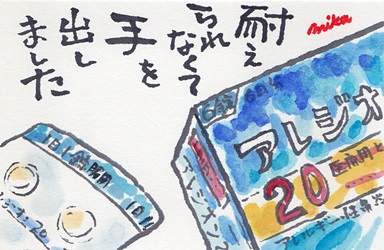 耐え
られなくて
手を
出し
ました
mika
6錠 6日分
アレジオ
20
医療用と
アレルギー
アレジオン2
1日1錠